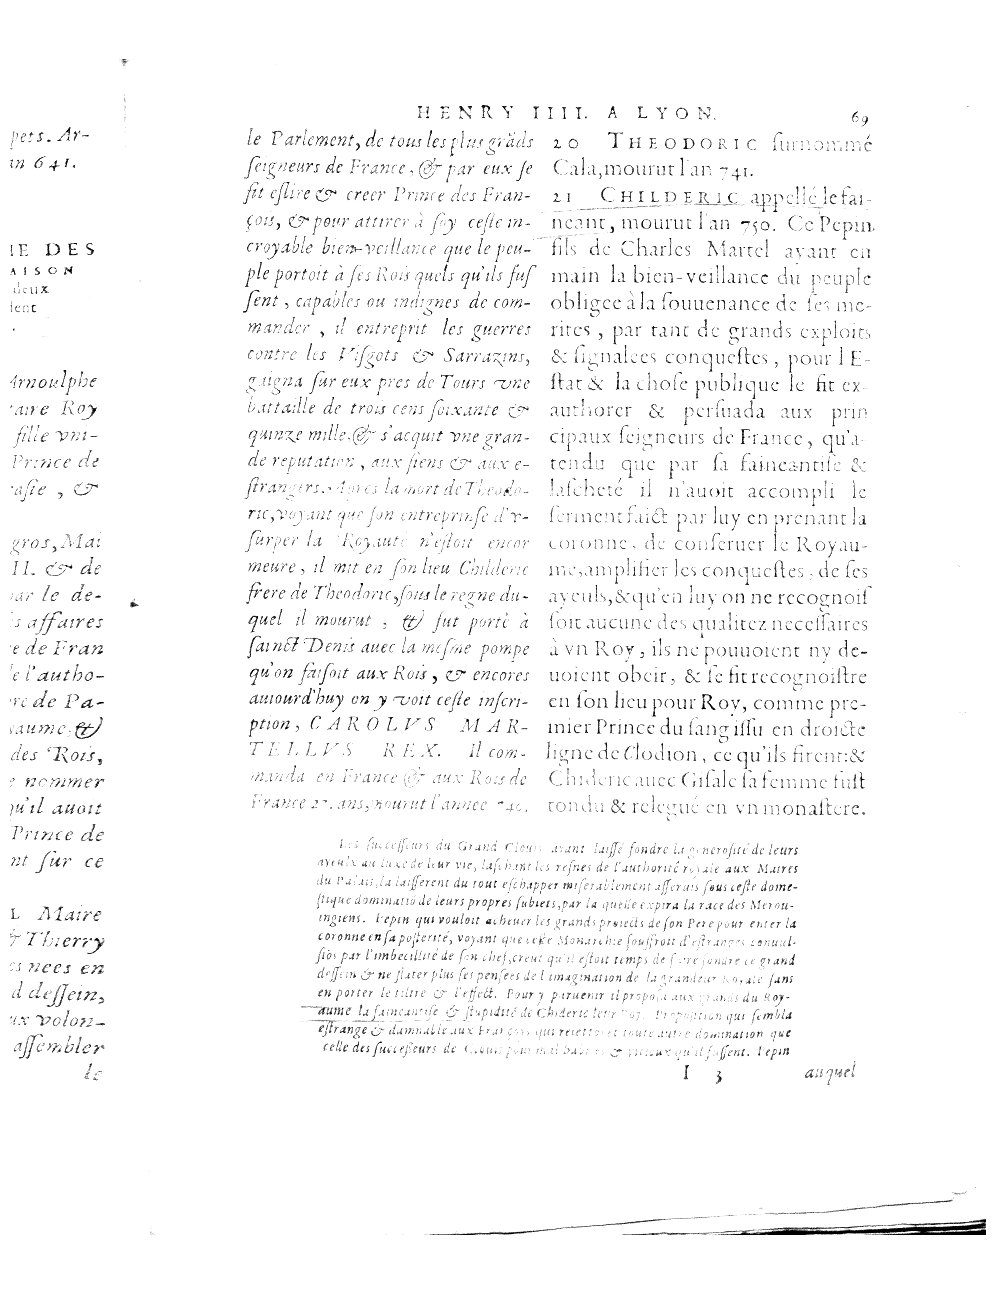 pets. Ar-
in 641.
IE DES
AISON
deux
ient
Arnoulphe
aire Roy
fille vni-
Prince de
rasie, &
gros, Mai
II. & de
par le de-
s affaires
e de Fran
e l'autho-
re de Pa-
aume, &
des Rois,
e nommer
qu'il auoit
Prince de
nt sur ce
L Maire
& Thierry
es nees en
d dessein,
ux volon-
assembler
le
HENRY IIII. A LYON. 69
le Parlement, de tous les plus grāds
seigneurs de France, & par eux se
fit eslire & creer Prince des Fran-
çois, & pour attirer à soy ceste in-
croyable bien-veillance que le peu-
ple portoit à ses Rois quels qu'ils fus
sent, capables ou indignes de com-
mander, il entreprit les guerres
contre les Visgots & Sarrazins,
gaigna sur eux pres de Tours vne
battaille de trois cens soixante &
quinze mille, & s'acquit vne gran-
de reputation, aux siens & aux e-
strangers. Apres la mort de Theodo-
ric, voyant que son entreprinse d'v-
surper la Royauté n'estoit encor
meure, il mit en son lieu Childeric
frere de Theodoric, sous le regne du-
quel il mourut, & fut porté à
sainct Denis auec la mesme pompe
qu'on faisoit aux Rois, & encores
auiourd'huy on y voit ceste inscri-
ption, CAROLVS MAR-
TELLVS REX. Il com-
manda en France & aux Rois de
France 27. ans, mourut l'annee 741.
20 THEODORIC surnommé
Cala, mourut l'an 741.
21 CHILDERIC appellé le fai-
neant, mourut l'an 750. Ce Pepin,
fils de Charles Martel ayant en
main la bien-veillance du peuple
obligee à la souuenance de ses me-
rites, par tant de grands exploits
& signalees conquestes, pour l'E-
stat & la chose publique le fit ex-
authorer & persuada aux prin
cipaux seigneurs de France, qu'a-
tendu que par sa faineantise &
lascheté il n'auoit accompli le
serment faict par luy en prenant la
coronne, de conseruer le Royau-
me, amplifier les conquestes, de ses
ayeuls, & qu'en luy on ne recognois
soit aucune des qualitez necessaires
à vn Roy, ils ne pouuoient ny de-
uoient obeir, & se fit recognoistre
en son lieu pour Roy, comme pre-
mier Prince du sang issu en droicte
ligne de Clodion, ce qu'ils firent: &
Chideric auec Gisale sa femme fust
tondu & relegué en vn monastere.
Les successeurs du Grand Clouis ayant laissé fondre la generosité de leurs
ayeulx au luxe de leur vie, laschant les resnes de l'authorité royale aux Maires
du Palais, la laisserent du tout eschapper miserablement asseruis sous ceste dome-
stique dominatiō de leurs propres subiets, par la quelle expira la race des Merou-
ingiens. Pepin qui vouloit acheuer les grands proiects de son Pere pour enter la
coronne en sa posterité, voyant que ceste Monarchie souffroit d'estranges conuul-
siōs par l'imbecillité de son chef, creut qu'il estoit temps de faire fondre ce grand
dessein & ne flater plus ses pensees de l'imagination de la grandeur Royale sans
en porter le tiltre & l'effect. Pour y paruenir il proposa aux grands du Roy-
aume la faineantise & stupidité de Chideric leur Roy. Proposition qui sembla
estrange & damnable aux François qui reiettoient toute autre domination que
celle des successeurs de Clouis pour mal & vicieux qu'il fussent. Pepin
I 3 auquel